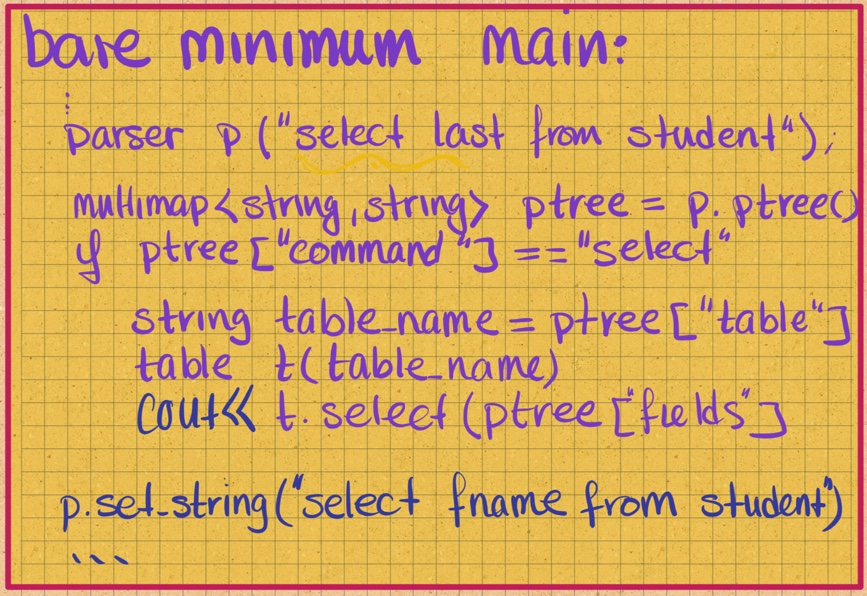 bare minimum main:
⋮
parser p ("select last from student");
multimap<string,string> ptree = p. ptree()
if ptree ["command"] == "select"
string table_name = ptree ["table"]
table t(table_name)
cout<< t. select (ptree ["fields"]
p.set_string("select fname from student")
...